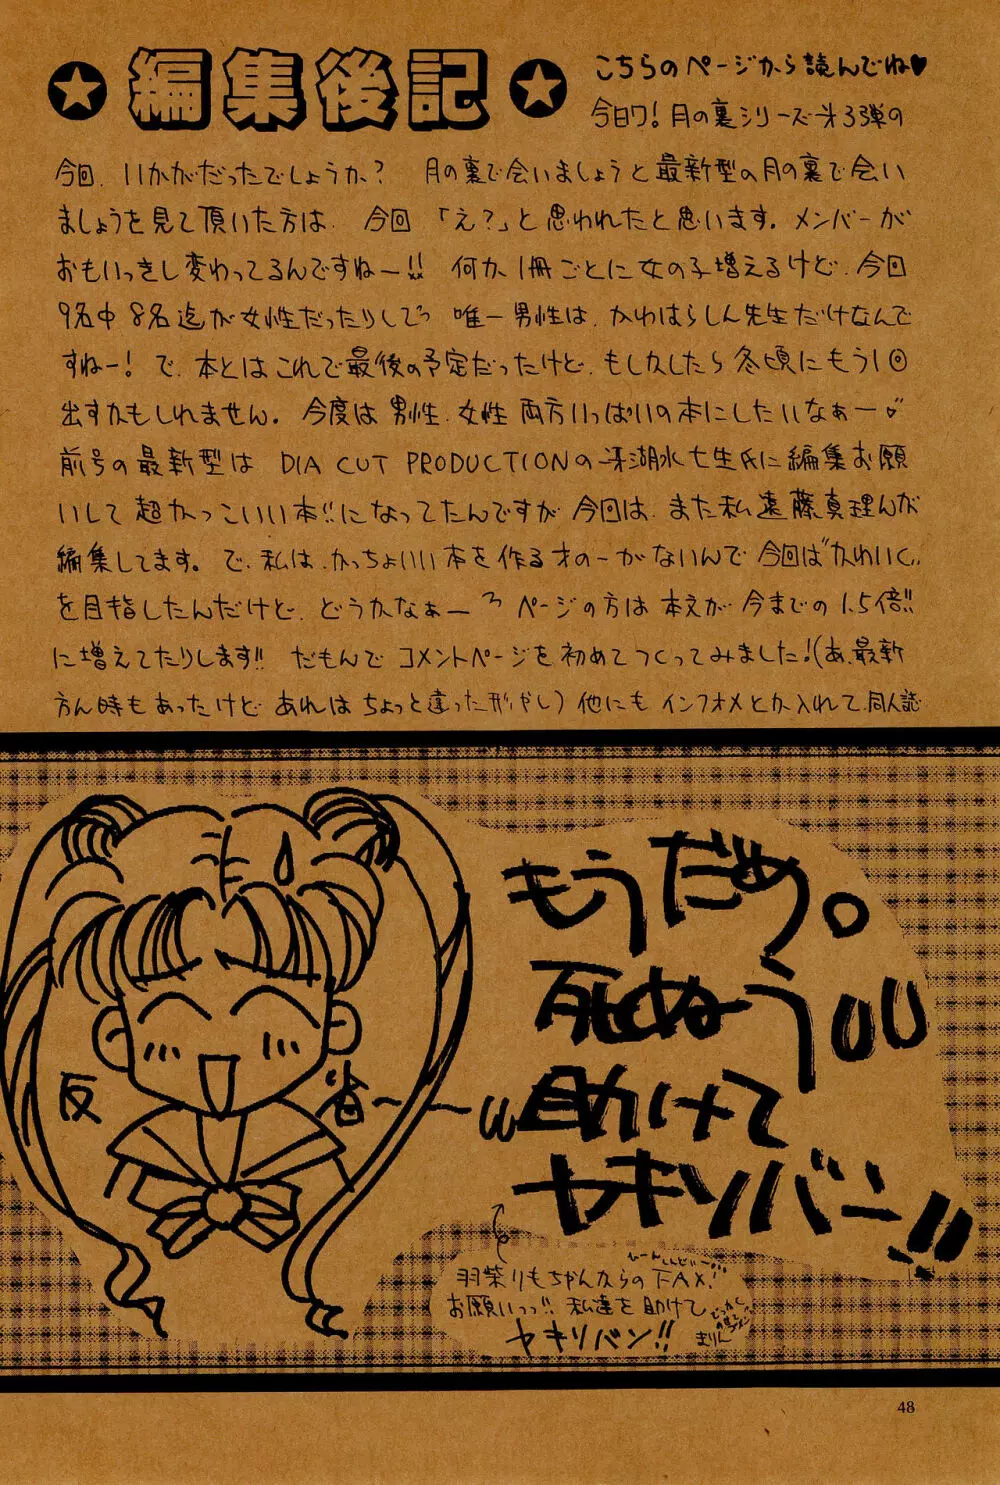 ★編集後記★
こちらのページから読んでね♥
今日ワ!月の裏シリーズ㐧3弾の
今回、いかがだったでしょうか? 月の裏で会いましょうと最新型の月の裏で会い
ましょうを見て頂いた方は、今回「え?」と思われたと思います。メンバーが
おもいっきし変わってるんですねー!! 何か1冊ごとに女の子増えるけど、今回
9名中8名迄が女性だったりしてっ 唯一男性は、かわはらしん先生だけなんで
すねー! で、本とはこれで最後の予定だったけど、もしかしたら冬頃にもう1回
出すかもしれません。今度は男性、女性両方いっぱいの本にしたいなぁー
前号の最新型は DIA CUT PRODUCTIONの 湖水七生氏に編集お願
いして超かっこいい本!!になってたんですが今回は、また私遠藤真理んが
編集してます。で、私は、かっちょいい本を作る才のーがないんで今回は"かわいく"
を目指したんだけど、どうかなぁー ページの方は本文が今までの1.5倍!!
に増えてたりします!! だもんでコメントページを初めてつくってみました!(あ、最新
方ん時もあったけど あれはちょっと違った形やし)他にもインフォメとか入れて、同人誌
もうだめ。
死ぬぅ
助けて
ヤキソバーン!!
反省〜〜
羽柴りもちゃんからのFAX!
お願いっっ!! 私達を助けて
ヤキソバン!!
まりん
48